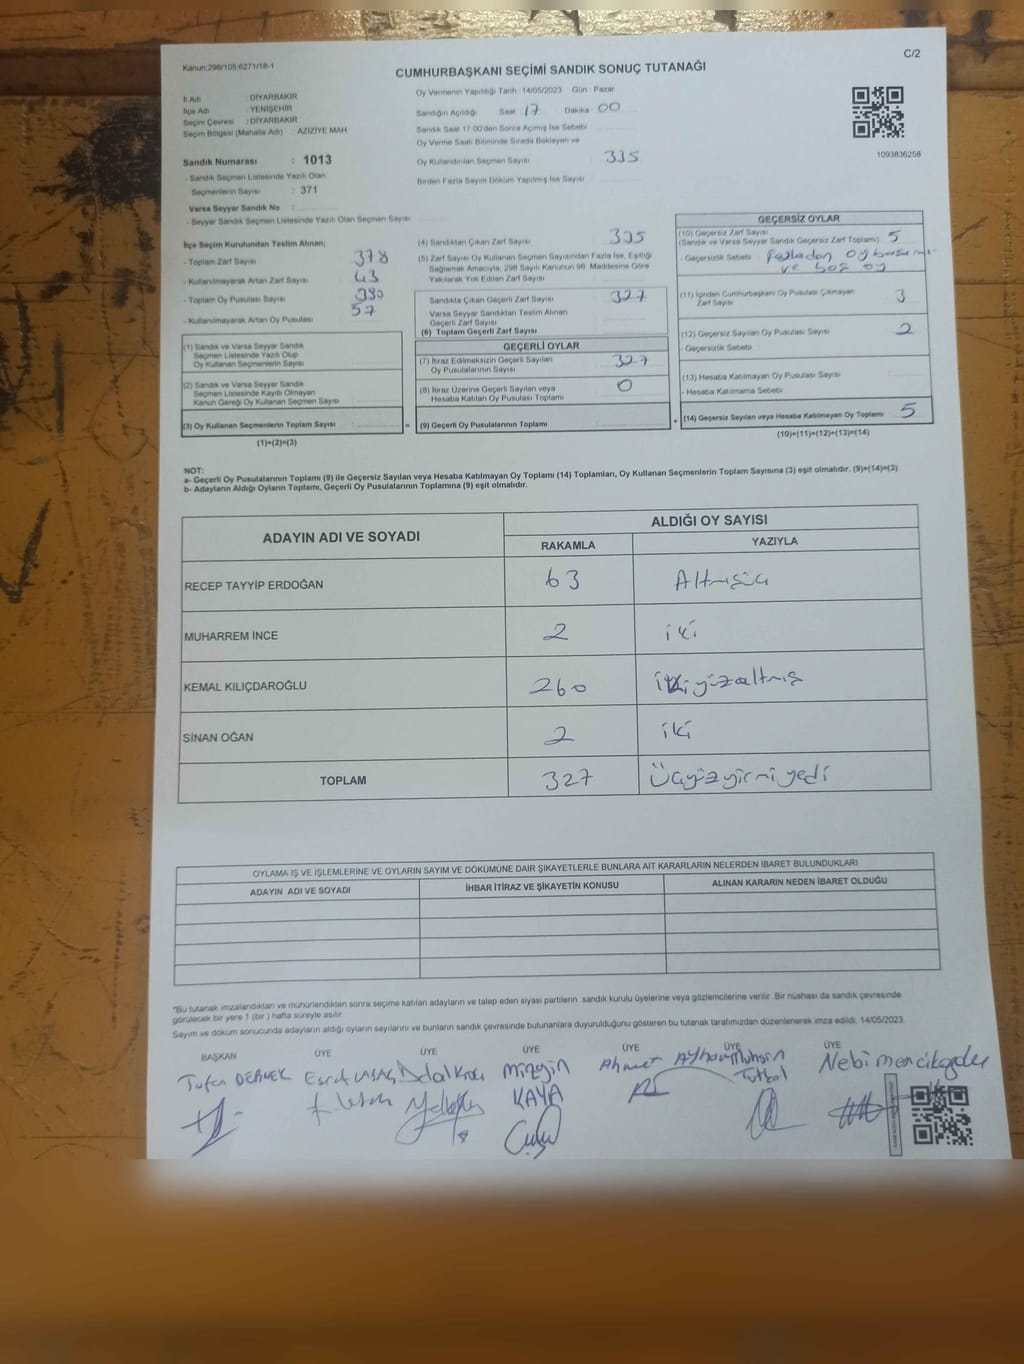 Kanun:298/105;6271/18-1
C/2
CUMHURBAŞKANI SEÇİMİ SANDIK SONUÇ TUTANAĞI
İl Adı : DİYARBAKIR
İlçe Adı : YENİŞEHİR
Seçim Çevresi : DİYARBAKIR
Seçim Bölgesi (Mahalle Adı) : AZİZİYE MAH
Sandık Numarası : 1013
- Sandık Seçmen Listesinde Yazılı Olan
Seçmenlerin Sayısı : 371
Varsa Seyyar Sandık No :
- Seyyar Sandık Seçmen Listesinde Yazılı Olan Seçmen Sayısı
Oy Vermenin Yapıldığı Tarih : 14/05/2023 Gün : Pazar
Sandığın Açıldığı Saat 17 Dakika 00
Sandık Saat 17:00'den Sonra Açılmış İse Sebebi
Oy Verme Saati Bitiminde Sırada Bekleyen ve
Oy Kullandırılan Seçmen Sayısı 335
Birden Fazla Sayım Döküm Yapılmış İse Sayısı
1093836258
İlçe Seçim Kurulundan Teslim Alınan;
- Toplam Zarf Sayısı 378
- Kullanılmayarak Artan Zarf Sayısı 43
- Toplam Oy Pusulası Sayısı
- Kullanılmayarak Artan Oy Pusulası 57
(1) Sandık ve Varsa Seyyar Sandık
Seçmen Listesinde Yazılı Olup
Oy Kullanan Seçmenlerin Sayısı
(2) Sandık ve Varsa Seyyar Sandık
Seçmen Listesinde Kayıtlı Olmayan
Kanun Gereği Oy Kullanan Seçmen Sayısı
(3) Oy Kullanan Seçmenlerin Toplam Sayısı :
(1)+(2)=(3)
(4) Sandıktan Çıkan Zarf Sayısı 335
(5) Zarf Sayısı Oy Kullanan Seçmen Sayısından Fazla İse, Eşitliği
Sağlamak Amacıyla, 298 Sayılı Kanunun 98. Maddesine Göre
Yakılarak Yok Edilen Zarf Sayısı
Sandıkta Çıkan Geçerli Zarf Sayısı 327
Varsa Seyyar Sandıktan Teslim Alınan
Geçerli Zarf Sayısı
(6) Toplam Geçerli Zarf Sayısı
GEÇERLİ OYLAR
(7) İtiraz Edilmeksizin Geçerli Sayılan
Oy Pusulalarının Sayısı 327
(8) İtiraz Üzerine Geçerli Sayılan veya
Hesaba Katılan Oy Pusulası Toplamı 0
=
(9) Geçerli Oy Pusulalarının Toplamı
+
GEÇERSİZ OYLAR
(10) Geçersiz Zarf Sayısı
(Sandık ve Varsa Seyyar Sandık Geçersiz Zarf Toplamı) 5
- Geçersizlik Sebebi : Fazladan oy
ve boş oy
(11) İçinden Cumhurbaşkanı Oy Pusulası Çıkmayan
Zarf Sayısı 3
(12) Geçersiz Sayılan Oy Pusulası Sayısı 2
- Geçersizlik Sebebi :
(13) Hesaba Katılmayan Oy Pusulası Sayısı
- Hesaba Katılmama Sebebi
(14) Geçersiz Sayılan veya Hesaba Katılmayan Oy Toplamı 5
(10)+(11)+(12)+(13)=(14)
NOT:
a- Geçerli Oy Pusulalarının Toplamı (9) ile Geçersiz Sayılan veya Hesaba Katılmayan Oy Toplamı (14) Toplamları, Oy Kullanan Seçmenlerin Toplam Sayısına (3) eşit olmalıdır. (9)+(14)=(3)
b- Adayların Aldığı Oyların Toplamı, Geçerli Oy Pusulalarının Toplamına (9) eşit olmalıdır.
ADAYIN ADI VE SOYADI
ALDIĞI OY SAYISI
RAKAMLA YAZIYLA
RECEP TAYYİP ERDOĞAN 63 Altmışüç
MUHARREM İNCE 2 iki
KEMAL KILIÇDAROĞLU 260 ikiyüzaltmış
SİNAN OĞAN 2 iki
TOPLAM 327 Üçyüzyirmiyedi
OYLAMA İŞ VE İŞLEMLERİNE VE OYLARIN SAYIM VE DÖKÜMÜNE DAİR ŞİKAYETLERLE BUNLARA AİT KARARLARIN NELERDEN İBARET BULUNDUKLARI
ADAYIN ADI VE SOYADI İHBAR İTİRAZ VE ŞİKAYETİN KONUSU ALINAN KARARIN NEDEN İBARET OLDUĞU
*Bu tutanak imzalandıktan ve mühürlendikten sonra seçime katılan adayların ve talep eden siyasi partilerin sandık kurulu üyelerine veya gözlemcilerine verilir. Bir nüshası da sandık çevresinde
görülecek bir yere 1 (bir) hafta süreyle asılır.
Sayım ve döküm sonucunda adayların aldığı oyların sayılarını ve bunların sandık çevresinde bulunanlara duyurulduğunu gösteren bu tutanak tarafımızdan düzenlenerek imza edildi. 14/05/2023
BAŞKAN ÜYE ÜYE ÜYE ÜYE ÜYE ÜYE
Mizgin Ahmet Ayhan Muhsin
KAYA